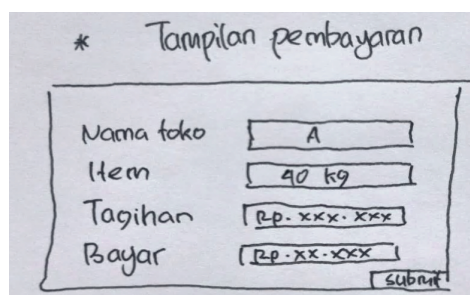 * Tampilan pembayaran
Nama toko A
Item 40 kg
Tagihan Rp. xxx. xxx
Bayar Rp. xx. xxx
submit